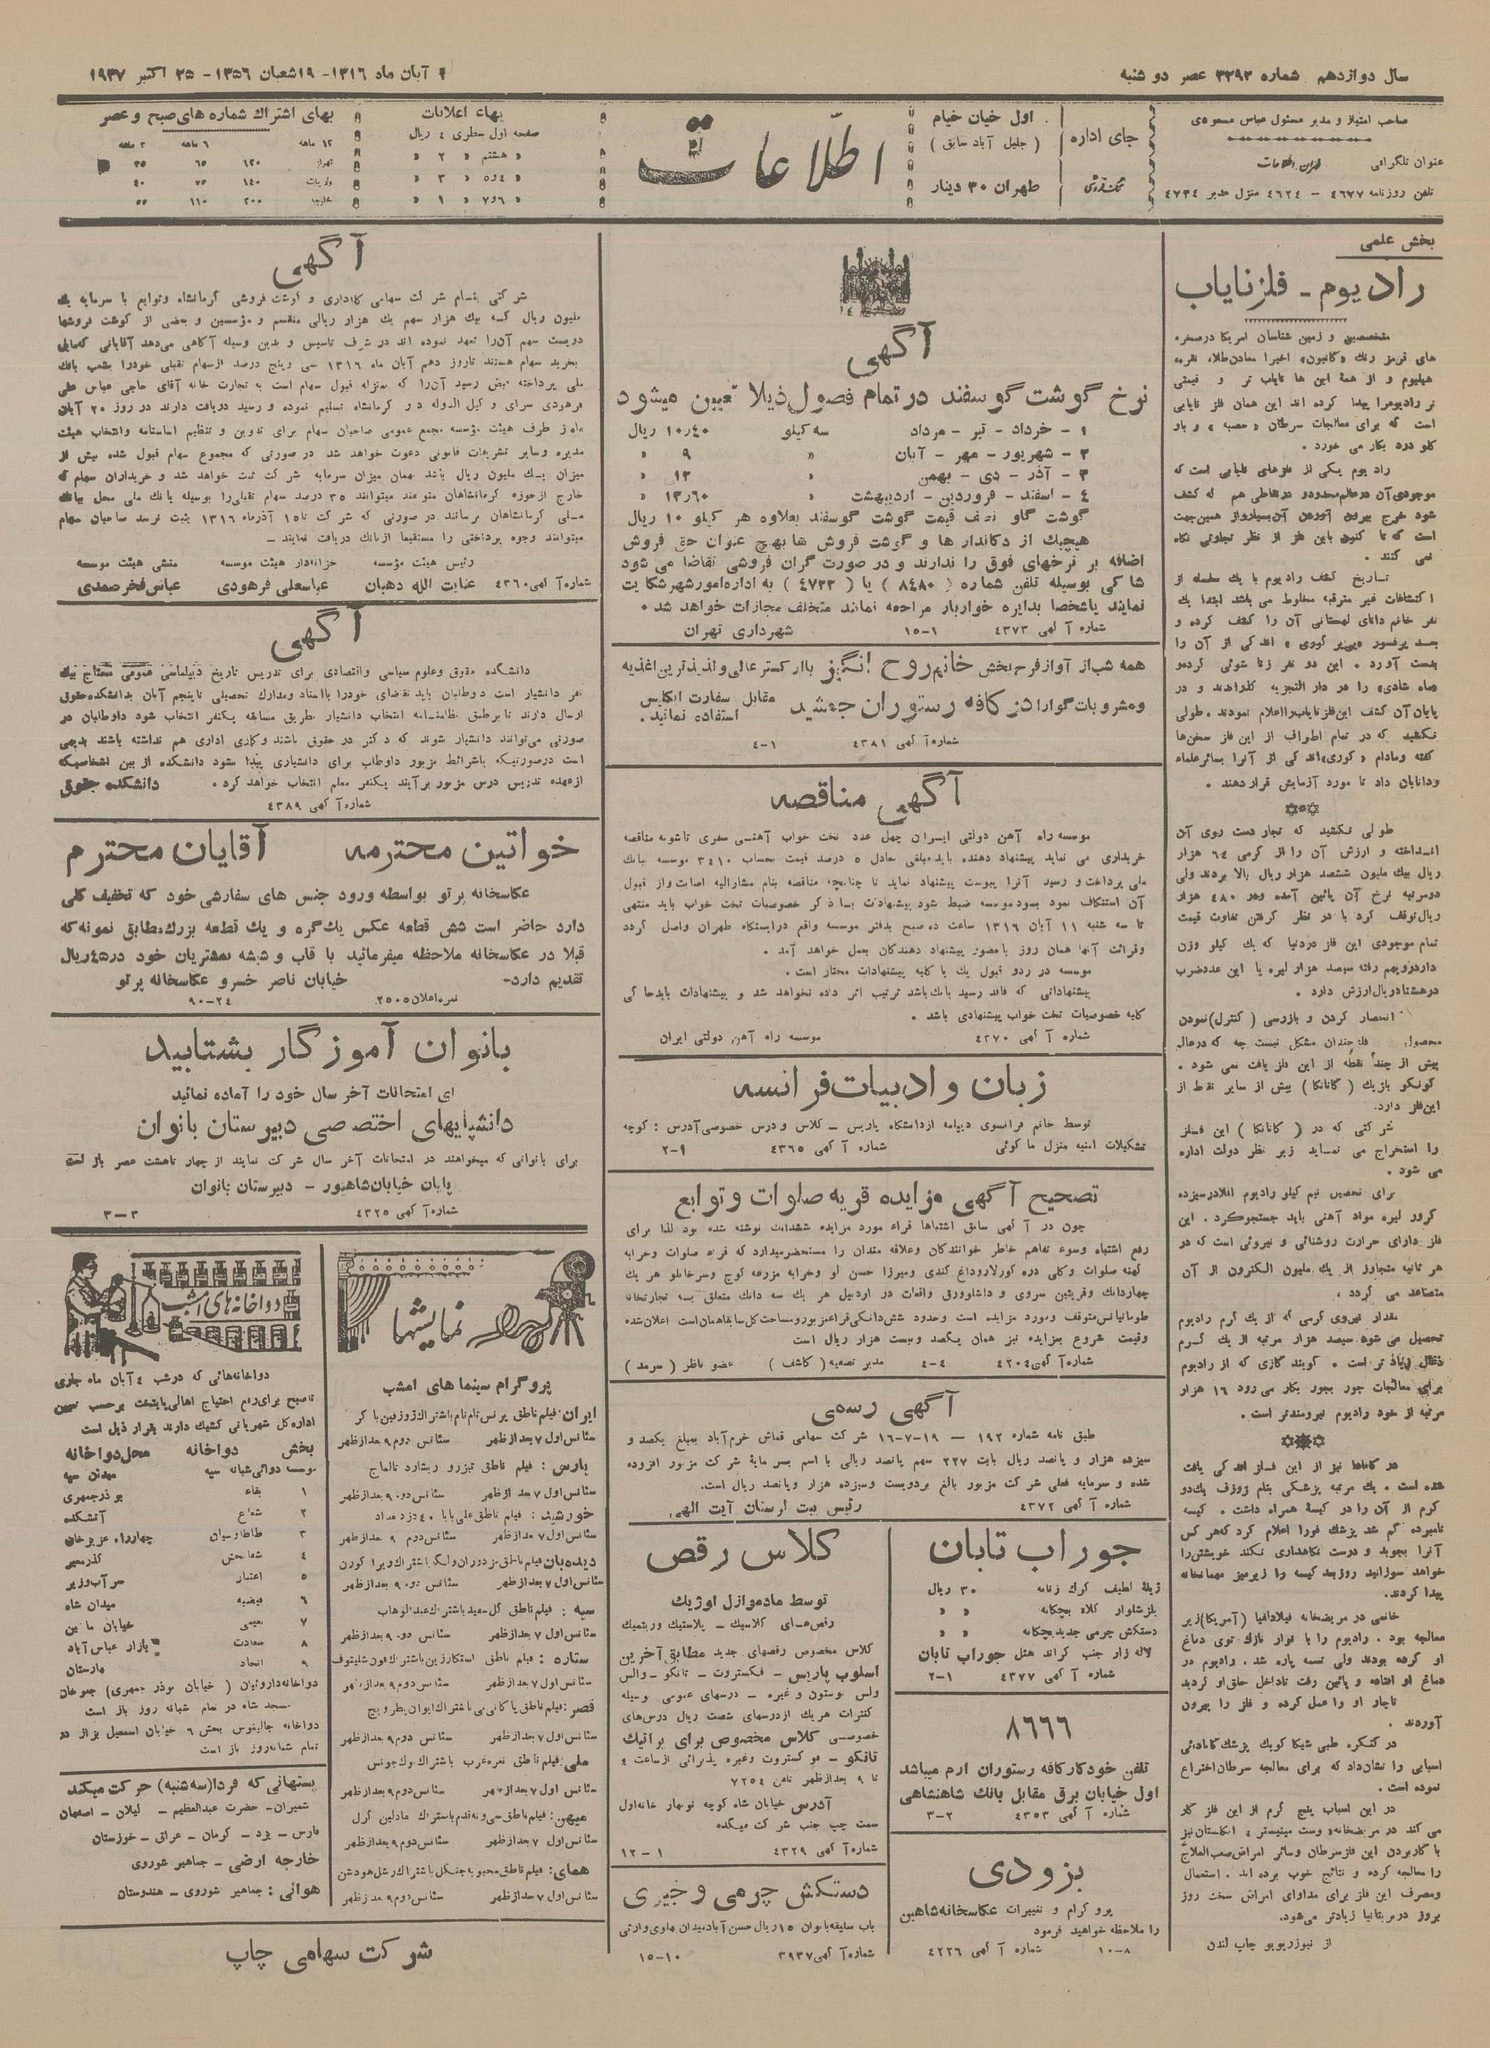 سال دوازدهم شماره ۳۲۹۲ عصر دو شنبه
۴ آبان ماه ۱۳۱۶- ۱۹شعبان ۱۳۵۶- ۲۵ اکتبر ۱۹۳۷
صاحب امتیاز و مدیر مسئول عباس مسعودی
عنوان تلگرافی
تلفن روزنامه ۴۶۷۷ - ۴۶۲۴ منزل مدیر ۴۷۳۴
جای اداره
اول خیابان خیام
( جلیل آباد سابق )
تکفروشی
طهران ۳۰ دینار
اطلاعات
بهاء اعلانات
صفحه اول سطری ٤ ریال
« هشتم « ۲ «
« ۶و۷ « ۱ «
بهای اشتراک شماره های صبح و عصر
۱۲ ماهه ۶ ماهه ۳ ماهه
طهران ۱۲۰ ۶۵ ۳۵
ولایات ۱۴۰ ۷۵ ۴۰
خارجه ۲۰۰ ۱۱۰ ۵۵
بخش علمی
رادیوم - فلز نایاب
متخصصین و زمین شناسان امریکا در صخره
است که برای معالجات سرطان
رادیوم یکی از فلزهای
موجودی آن در عالم محدود و در نقاطی هم که کشف
شود خرج بیرون آوردن آن بسیار و از همین جهت
است که تا کنون باین فلز از نظر تجارتی نگاه
نمی کنند .
تاریخ کشف رادیوم با یک سلسله از
اکتشافات غیر مترقبه مخلوط می باشد ابتدا یک
نفر خانم دانای لهستانی آن را کشف کرده و
بعد پرفسور «پیر کوری» اندکی از آن را
بدست آورد . این دو نفر زنا شوئی کرده
پایان آن کشف این فلز نایاب را اعلام نمودند . طولی
نکشید که در تمام اطراف از این فلز سخن‌ها
گفته و مادام «کوری» اندکی از آنرا بسائر علماء
و دانایان داد تا مورد آزمایش قرار دهند .
طولی نکشید که تجار دست روی آن
انداخته و ارزش آن را از گرمی ٦٤ هزار
ریال بیک ملیون ششصد هزار ریال بالا بردند ولی
دو مرتبه نرخ آن پائین آمده و در ٤٨٠ هزار
ریال توقف کرد با در نظر گرفتن تفاوت قیمت
تمام موجودی این فلز در دنیا که یک کیلو وزن
دارد رویهم رفته سیصد هزار لیره یا این عدد ضرب
در هشتاد ریال ارزش دارد .
انحصار کردن و بازرسی ( کنترل) نمودن
محصول فلز چندان مشکل نیست چه که در عالم
بیش از چند نقطه از این فلز یافت نمی شود .
کونکو بلژیک ( کاتانکا ) بیش از سایر نقط از
این فلز دارد.
شرکتی که در ( کاتانکا ) این فلز
را استخراج می نماید زیر نظر دولت اداره
می شود .
برای تحصیل نیم کیلو رادیوم اقلا در سیزده
کرور لیره مواد آهنی باید جستجو کرد . این
فلز دارای حرارت روشنائی و نیروئی است که در
هر ثانیه متجاوز از یک ملیون الکترون از آن
متصاعد می گردد .
مقدار نیروی گرمی که از یک گرم رادیوم
تحصیل می شود سیصد هزار مرتبه از یک گرم
ذغال زیاد تر است . گویند گازی که از رادیوم
برای معالجات جور بجور بکار می رود ۱۶ هزار
مرتبه از خود رادیوم نیرومند تر است .
در کانادا نیز از این فلز اندکی یافت
شده است . یک مرتبه پزشکی بنام ژوزف یک دو
گرم از آن را در کیسهٔ همراه داشت . کیسه
نامبرده گم شد پزشک فورا اعلام کرد که هر کس
آنرا بجوید و درست نگاهداری نکند خویشتن را
خواهد سوزانید روز بعد کیسه را زیر میز مهمانخانه
پیدا کردند.
خانمی در مریضخانه فیلادلفیا (آمریکا) زیر
معالجه بود . رادیوم را با نوار نازک توی دماغ
او کرده بودند ولی تسمه پاره شد . رادیوم در
دماغ او افتاده و پائین رفت تا داخل حلق او گردید
ناچار او را عمل کرده و فلز را بیرون
آوردند .
در کنگره طبی شیکاگو یک پزشک کانادائی
اسبابی را نشان داد که برای معالجه سرطان اختراع
نموده است .
در این اسباب پنج گرم از این فلز کار
می کند در مریضخانه « وست مینیستر » انگلستان نیز
با کار بردن این فلز سرطان و سائر امراض صعب العلاج
را معالجه کرده و نتایج خوب برده اند . استعمال
و مصرف این فلز برای مداوای امراض سخت روز
بروز در بریتانیا زیادتر می‌شود.
از نیوز ریویو چاپ لندن
آگهی
نرخ گوشت گوسفند در تمام فصول ذیلا تعیین میشود
۱ - خرداد - تیر - مرداد سه کیلو ۱۰٫۴۰ ریال
۲ - شهریور - مهر - آبان « ۹ «
۳ - آذر - دی - بهمن « ۱۲ «
٤ - اسفند - فروردین - اردیبهشت « ۱۳٫۶۰ «
گوشت گاو نصف قیمت گوشت گوسفند بعلاوه هر کیلو ۱۰ ریال
هیچیک از دکاندار ها و گوشت فروش ها بهیچ عنوان حق فروش
اضافه بر نرخهای فوق را ندارند و در صورت گران فروشی تقاضا می شود
شاکی بوسیله تلفن شماره ( ۸۴۸۰ ) یا ( ۴۷۲۲ ) به اداره امور شهر شکایت
نمایند یا شخصا بدایره خواربار مراجعه نمایند متخلف مجازات خواهد شد .
شماره آگهی ۴۳۷۳ ۱-۱۵ شهرداری تهران
همه شب از آواز فرح بخش خانم روح انگیز با ارکستر عالی و لذیذ ترین اغذیه
و مشروبات گوارا در کافه رستوران جمشید مقابل سفارت انگلیس استفاده نمائید .
شماره آگهی ۴۳۸۱ ۱-۴
آگهی مناقصه
موسسه راه آهن دولتی ایران چهل عدد تخت خواب آهنی سفری تاشو به مناقصه
خریداری می نماید پیشنهاد دهنده باید مبلغی معادل ۵ درصد قیمت بحساب ۳۴۱۰ موسسه ببانک
ملی پرداخت و رسید آنرا پیوست پیشنهاد نماید تا چنانچه مناقصه بنام مشارالیه اصابت و از قبول
آن استنکاف نمود بسود موسسه ضبط شود پیشنهادات با ذکر خصوصیات تخت خواب باید منتهی
تا سه شنبه ۱۱ آبان ۱۳۱۶ ساعت ده صبح بدفتر موسسه واقع در ایستگاه طهران واصل گردد
و قرائت آنها همان روز با حضور پیشنهاد دهندگان بعمل خواهد آمد .
موسسه در رد و قبول یک یا کلیه پیشنهادات مختار است .
پیشنهاداتی که فاقد رسید بانک باشد ترتیب اثر داده نخواهد شد و پیشنهادات باید حاکی
کلیه خصوصیات تخت خواب پیشنهادی باشد .
شماره آگهی ۴۲۷۰ موسسه راه آهن دولتی ایران
زبان و ادبیات فرانسه
توسط خانم فرانسوی دیپلمه از دانشگاه پاریس - کلاس و درس خصوصی آدرس : کوچه
تشکیلات امنیه منزل ماکوئی شماره آگهی ۴۳۶۵ ۹-۲
تصحیح آگهی مزایده قریه صلوات و توابع
چون در آگهی سابق اشتباها قراء مورد مزایده ششدانگ نوشته شده بود لذا برای
رفع اشتباه و سوء تفاهم خاطر خوانندگان و علاقه مندان را مستحضر میدارد که قراء صلوات و خرابه
و قیمت شروع بمزایده نیز همان یکصد و بیست هزار ریال است
شماره آگهی ۴۲۰۴ ۴-۴ مدیر تصفیه ( کاشف ) عضو ناظر ( سرمد )
آگهی رسمی
طبق نامه شماره ۱۹۲ - ۱۹-۷-۱۶ شرکت سهامی قماش خرم آباد بمبلغ یکصد و
سیزده هزار و پانصد ریال بابت ۲۲۷ سهم پانصد ریالی با اسم بسرمایهٔ شرکت مزبور افزوده
شده و سرمایه فعلی شرکت مزبور بالغ بر دویست و سیزده هزار و پانصد ریال است.
شماره آگهی ۴۳۷۲ رئیس ثبت لرستان آیت الهی
جوراب تابان
ژیلهٔ لطیف کرک زنانه ۳۰ ریال
بلز شلوار کلاه بچگانه « «
دستکش چرمی جدید بچگانه « «
لاله زار جنب گراند هتل جوراب تابان
شماره آگهی ۴۳۷۷ ۱-۲
۸۶۶۶
تلفن خودکار کافه رستوران ارم میباشد
اول خیابان برق مقابل بانک شاهنشاهی
شماره آگهی ۴۳۵۳ ۲-۳
بزودی
پروگرام و تغییرات عکاسخانه شاهین
را ملاحظه خواهید فرمود
۸-۱۰ شماره آگهی ۴۲۲۶
کلاس رقص
توسط مادموازل اوژنیک
رقص‌های کلاسیک - پلاستیک و ریتمیک
کلاس مخصوص رقصهای جدید مطابق آخرین
اسلوب پاریس - فکستروت - تانگو - والس
ولس بوستون و غیره - درسهای عمومی وسیله
کنترات هر یک از درسهای شصت ریال درس‌های
خصوصی کلاس مخصوص برای پراتیک
تانگو - فوکستروت و غیره پذیرائی از ساعت ٤
تا ۹ بعد از ظهر تلفن ۷۲۵۴
آدرس خیابان شاه کوچه نوبهار خانه اول
سمت چپ جنب شرکت میکده
شماره آگهی ۴۳۲۹ ۱-۱۲
دستکش چرمی و جیری
باب سلیقه بانوان ۱۵ ریال حسن آباد میدان پهلوی وارثی
شماره آگهی ۳۹۳۷ ۱۰-۱۵
آگهی
شرکتی بنام شرکت سهامی گله‌داری و گوشت فروشی کرمانشاه و توابع با سرمایه یک
ملیون ریال که بیک هزار سهم یک هزار ریالی منقسم و مؤسسین و بعضی از گوشت فروشها
دویست سهم آن را تعهد نموده اند در شرف تاسیس و بدین وسیله آگاهی می‌دهد آقایانی که مایل
بخرید سهام هستند تا روز دهم آبان ماه ۱۳۱۶ سی و پنج درصد از سهام نقدی خود را بشعبه بانک
ملی پرداخته قبض رسید آن را که بمنزله قبول سهام است به تجارت خانه آقای حاجی عباس علی
فرهودی سرای وکیل الدوله در کرمانشاه تسلیم نموده و رسید دریافت دارند در روز ۲۰ آبان
ماه از طرف هیئت مؤسسه مجمع عمومی صاحبان سهام برای تدوین و تنظیم اساسنامه و انتخاب هیئت
مدیره و سایر تشریفات قانونی دعوت خواهد شد در صورتی که مجموع سهام قبول شده بیش از
میزان یک ملیون ریال باشد بهمان میزان سرمایه شرکت ثبت خواهد شد و خریداران سهام که
خارج از حوزه کرمانشاهان متوطنند میتوانند ۳۵ درصد سهام نقدی را بوسیله بانک ملی محل ببانک
ملی کرمانشاهان برسانند در صورتی که شرکت تا ۱۵ آذرماه ۱۳۱۶ بثبت نرسد صاحبان سهام
میتوانند وجوه پرداختی را مستقیما از بانک دریافت نمایند -
رئیس هیئت مؤسسه خزانه دار هیئت موسسه منشی هیئت موسسه
شماره آگهی ۴۳۶۰ عنایت الله دهبان عباسعلی فرهودی عباس فخر صمدی
آگهی
دانشکده حقوق و علوم سیاسی و اقتصادی برای تدریس تاریخ دیپلماسی عمومی محتاج بیک
نفر دانشیار است داوطلبان باید تقاضای خود را با اسناد و مدارک تحصیلی تا پنجم آبان بدانشکده حقوق
ارسال دارند تا بر طبق نظامنامه انتخاب دانشیار بطریق مسابقه یکنفر انتخاب شود داوطلبان در
صورتی می‌توانند دانشیار شوند که دکتر در حقوق باشند و کار اداری هم نداشته باشند بدیهی
است در صورتیکه باشرائط مزبور داوطلب برای دانشیاری پیدا نشود دانشکده از بین اشخاصیکه
از عهده تدریس درس مزبور برآیند یکنفر معلم انتخاب خواهد کرد . دانشکده حقوق
شماره آگهی ۴۳۸۹
خواتین محترمه آقایان محترم
عکاسخانه پرتو بواسطه ورود جنس های سفارشی خود که تخفیف کلی
دارد حاضر است شش قطعه عکس یک گره و یک قطعه بزرگ مطابق نمونه که
قبلا در عکاسخانه ملاحظه میفرمائید با قاب و شیشه بمشتریان خود در ۴۵ ریال
تقدیم دارد- خیابان ناصر خسرو عکاسخانه پرتو
نمره اعلان ۲۵۰۵ ۲۴-۹۰
بانوان آموزگار بشتابید
برای امتحانات آخر سال خود را آماده نمائید
دانشپایهای اختصاصی دبیرستان بانوان
برای بانوانی که میخواهند در امتحانات آخر سال شرکت نمایند از چهار تا هشت عصر باز است
پایان خیابان شاهپور - دبیرستان بانوان
شماره آگهی ۴۳۲۵ ۳-۳
نمایشها
پروگرام سینما های امشب
ایران: فیلم ناطق پرنس تام تام باشتراک ژوزفین باکر
سئانس اول ۷ بعد از ظهر سئانس دوم ۹ بعد از ظهر
پارس : فیلم ناطق تیزرو ریشارد تالماج
سئانس اول ۷ بعد از ظهر سئانس دوم ۹ بعد از ظهر
خورشید : فیلم ناطق علی بابا ۴۰ دزد بغداد
سئانس اول ۷ بعد از ظهر سئانس دوم ۹ بعد از ظهر
دیده‌بان فیلم ناطق
سئانس اول ۷ بعد از ظهر سئانس دوم ۹ بعد از ظهر
سپه : فیلم ناطق گل سفید باشتراک عبدالوهاب
سئانس اول ۷ بعد از ظهر سئانس دوم ۹ بعد از ظهر
ستاره : فیلم ناطق
سئانس اول ۷ بعد از ظهر سئانس دوم ۹ بعد از ظهر
قصر: فیلم ناطق
سئانس اول ۷ بعد از ظهر سئانس دوم ۹ بعد از ظهر
ملی: فیلم ناطق نعره غرب باشتراک بوک جونس
سئانس اول ۷ بعد از ظهر سئانس دوم ۹ بعد از ظهر
میهن: فیلم ناطق
سئانس اول ۷ بعد از ظهر سئانس دوم ۹ بعد از ظهر
همای: فیلم ناطق
سئانس اول ۷ بعد از ظهر سئانس دوم ۹ بعد از ظهر
دواخانه‌های امشب
دواخانه‌هائی که در شب ٤ آبان ماه جاری
تا صبح برای رفع احتیاج اهالی پایتخت بر حسب تعیین
اداره کل شهربانی کشیک دارند بقرار ذیل است
بخش دواخانه محل دواخانه
موسسه دوائی شبانه سپه میدان سپه
۱ بقاء بوذرجمهری
۲ شعاع آتشکده
۳ طاطاوسیان چهارراه عزیزخان
٤ شفابخش گذر معیر
۵ اعتبار سر آب وزیر
۶ فیضیه میدان شاه
۷ نعیمی
۸ سعادت بازار عباس آباد
۹ اتحاد
دواخانه داروئیان ( خیابان بوذرجمهری) جنوبخان
مسجد شاه در تمام شبانه روز باز است
دواخانه جالینوس بخش ۶ خیابان اسمعیل بزاز در
تمام شبانه روز باز است
پستهائی که فردا (سه شنبه) حرکت میکند
شمیران- حضرت عبدالعظیم - گیلان - اصفهان
فارس - یزد - کرمان - عراق - خوزستان
خارجه ارضی - جماهیر شوروی
هوائی : جماهیر شوروی - هندوستان
شرکت سهامی چاپ